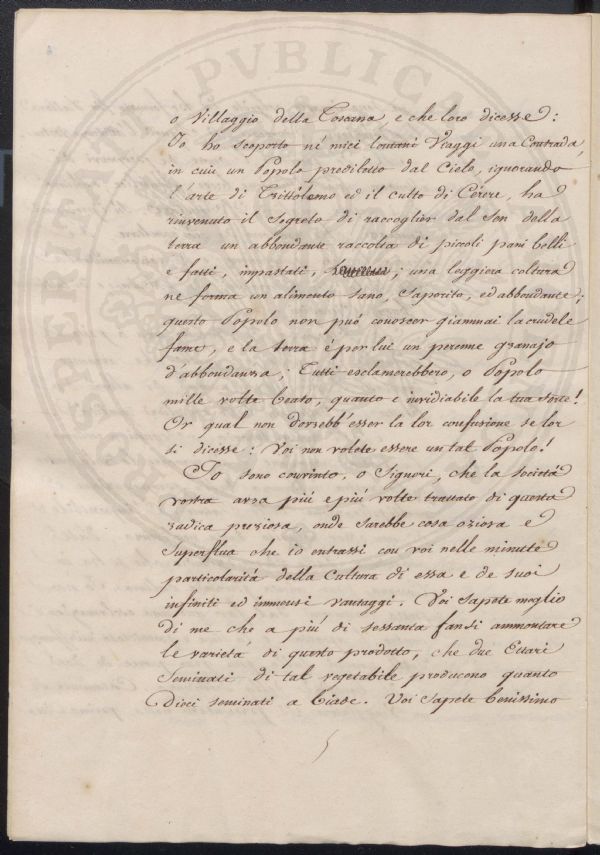 o Villaggio della Toscana, e che loro dicesse:
Io ho scoperto né miei lontani Viaggi una Contrada,
in cui un Popolo prediletto dal Cielo, ignorando
l'arte di Trittólemo ed il culto di Cérere, ha
rinvenuto il Segreto di raccoglier dal Sen della
terra un abbondante raccolta di piccoli pani belli
e fatti, impastati, ; una leggiera coltura
ne forma un alimento sano, saporito, ed abbondante;
questo Popolo non puó conoscer giammai la crudele
fame, e la terra é per lui un perenne granajo
d'abbondanza; Tutti esclamerebbero, o Popolo
mille volte beato, quanto é invidiabile la tua sorte!
Or qual non dovrebb'esser la lor confusione se lor
si dicesse: Voi non volete essere un tal Popolo!
Io sono convinto, o Signori, che la società
vostra avrà piú e piú volte trattato di questa
radica preziosa, onde sarebbe cosa oziosa e
superflua che io entrassi con voi nelle minute
particolarità della Cultura di essa e de suoi
infiniti ed immensi vantaggi. Voi sapete meglio
di me che a piú di sessanta fansi ammontare
le varietà di questo prodotto, che due Ettari
seminati di tal vegetabile producono quanto
dieci seminati a biade. Voi sapete benissimo
PVBLICA